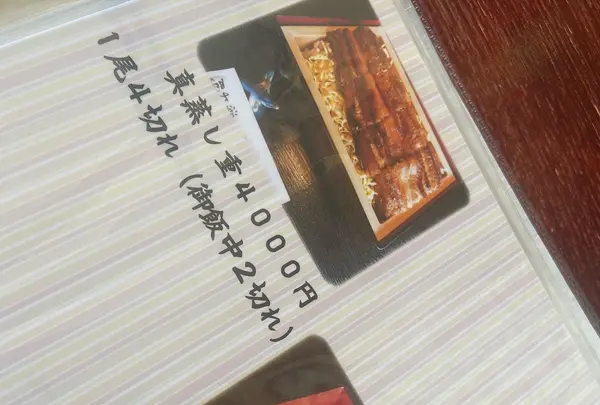 真蒸し重4000円
1尾4切れ (御飯中2切れ)